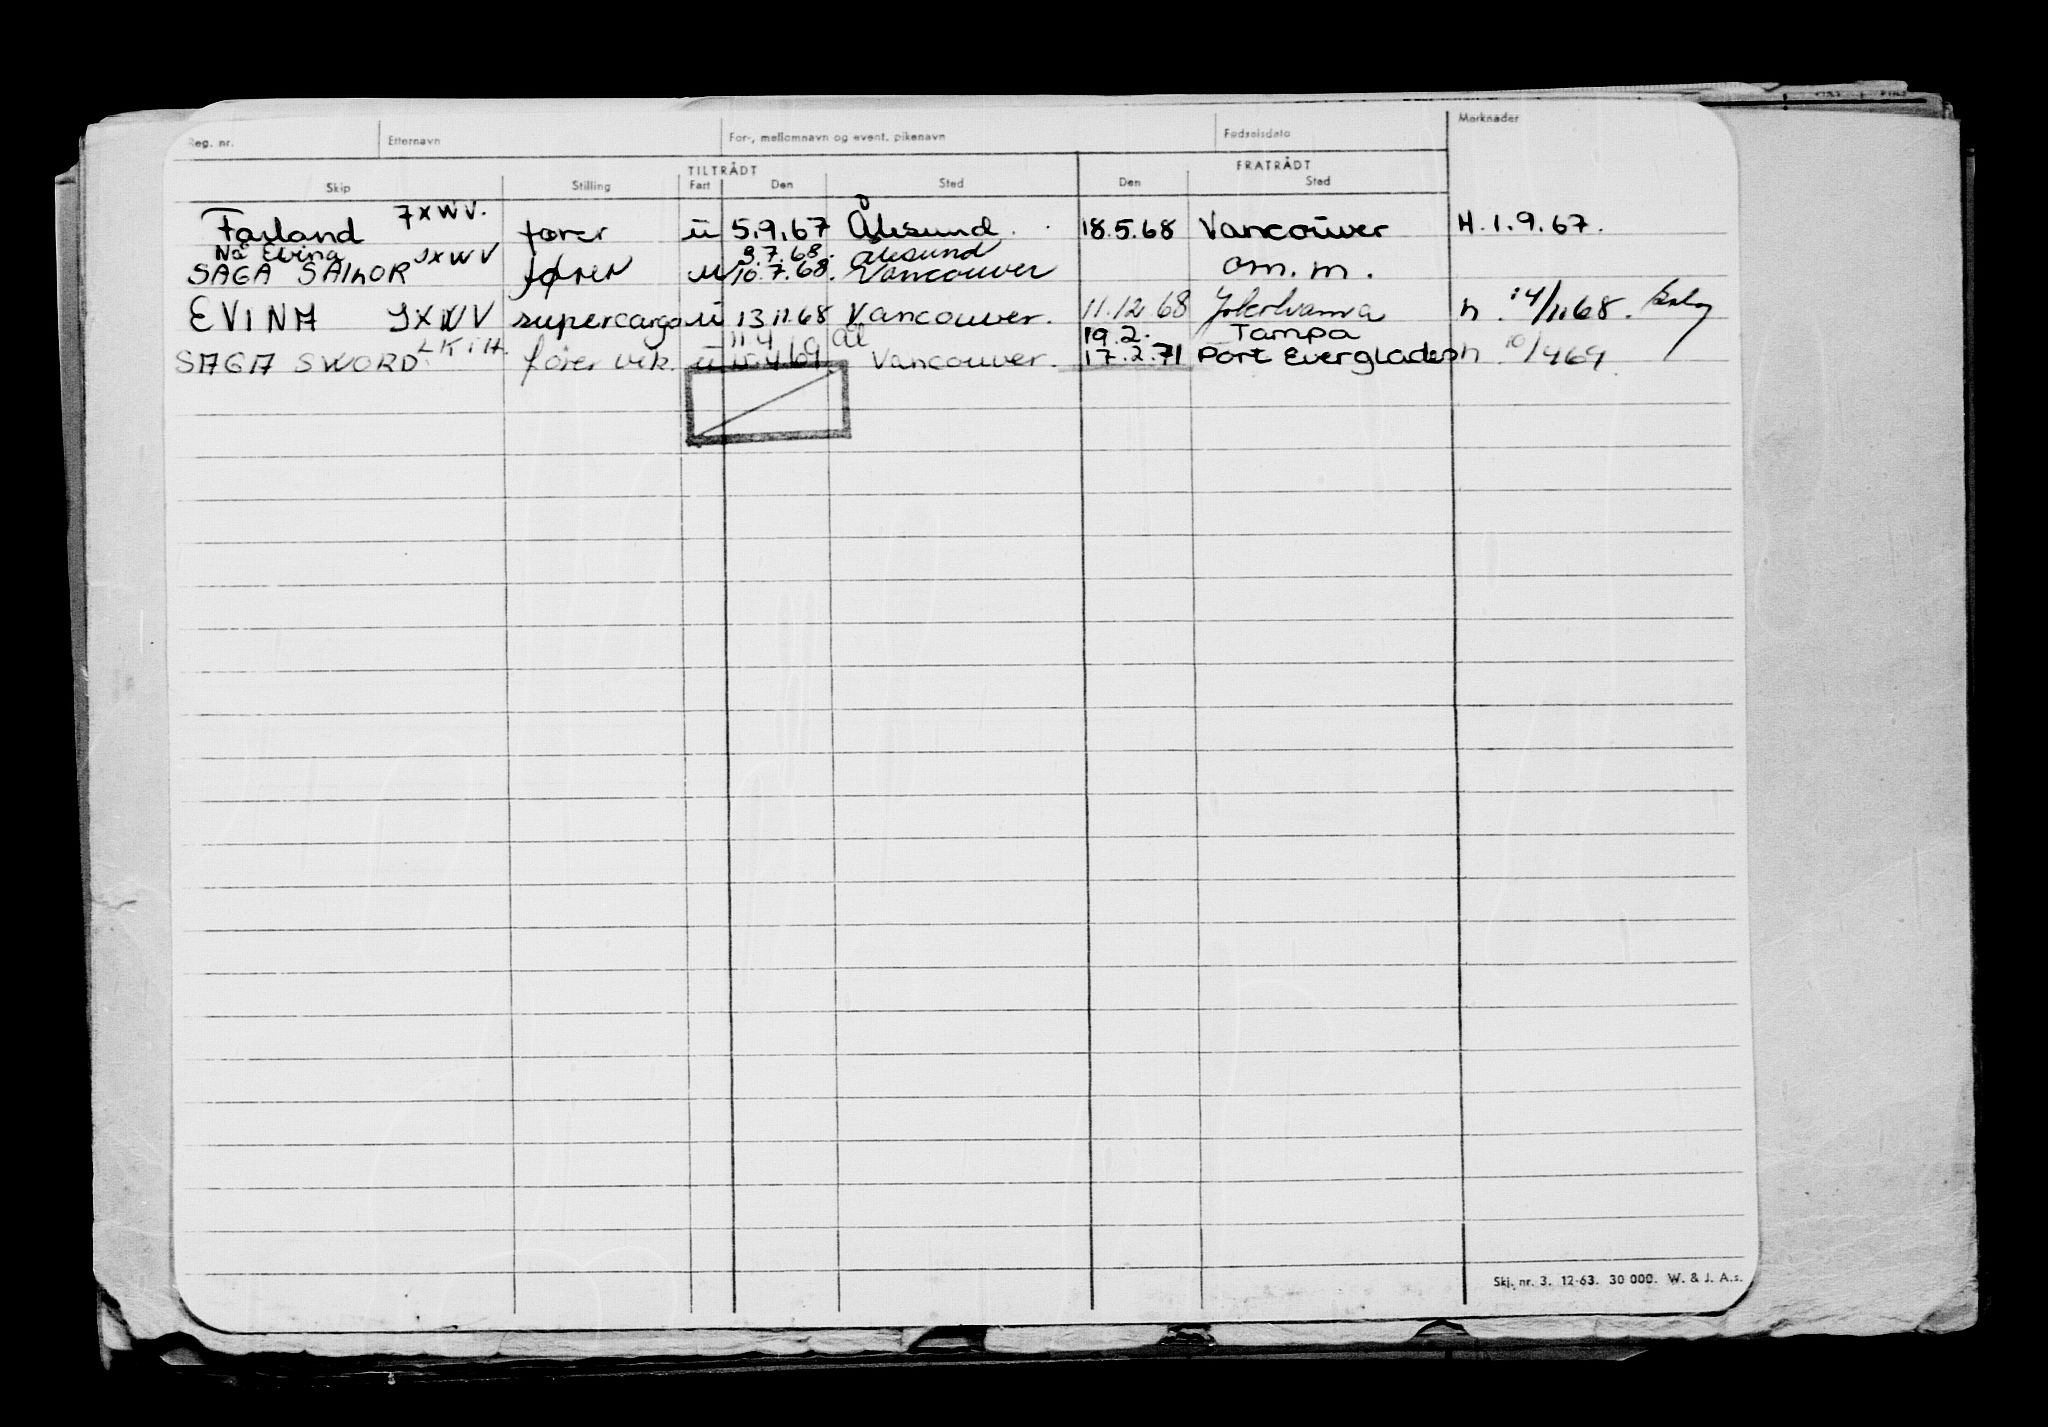 Reg. nr. Etternavn For-, mellomnavn og event. pikenavn Fødselsdato Merknader
TILTRÅDT FRATRÅDT
Skip Stilling Fart Den Sted Den Sted
Farland JXWV. fører u 5.9.67 Ålesund. 18.5.68 Vancouver H. 1.9.67.
Nå Evina JXWV 9.7.68. Ålesund
SAGA SAILOR fører u 10.7.68. Vancouver om. m.
EVINA JXWV supercargo u 13.11.68 Vancouver. 11.12.68 Yokohama h. 14/11.68.
11.4 Ål 19.2. Tampa
SAGA SWORD LKIH. fører vik. u 10.4.69 Vancouver. 17.2.71 Port Everglades h 10/469
Skj. nr. 3. 12-63. 30 000. W. & J. A.s.